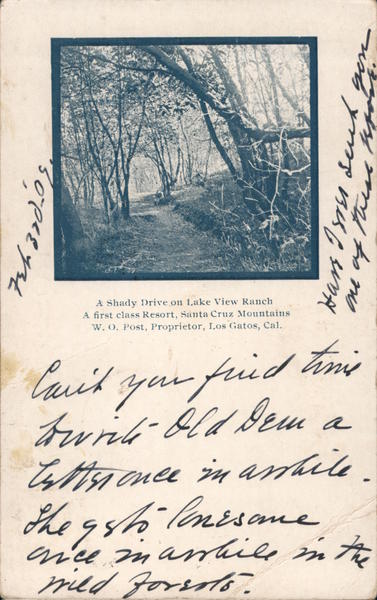 Feb 23d. 09.
Have I ever sent you
one of these before.
A Shady Drive on Lake View Ranch
A first class Resort, Santa Cruz Mountains
W. O. Post, Proprietor, Los Gatos, Cal.
Can't you find time
to write Old Dem a
letter once in awhile.
She gets lonesome
once in awhile in the
wild forests.